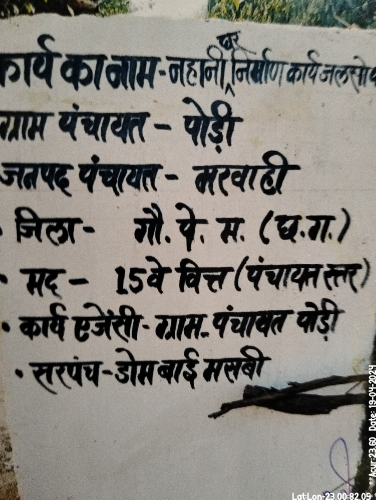 कार्य का नाम - नहानी घर निर्माण कार्य जल
ग्राम पंचायत - पोड़ी
जनपद पंचायत - मरवाही
• जिला - गौ. पे. म. (छ.ग.)
• मद - 15वे वित्त (पंचायत स्तर)
• कार्य एजेंसी - ग्राम-पंचायत पोड़ी
• सरपंच - डोमबाई मसबी
Acur-23.60 Date: 19-04-2024
Lat Lon-23.00:82.05